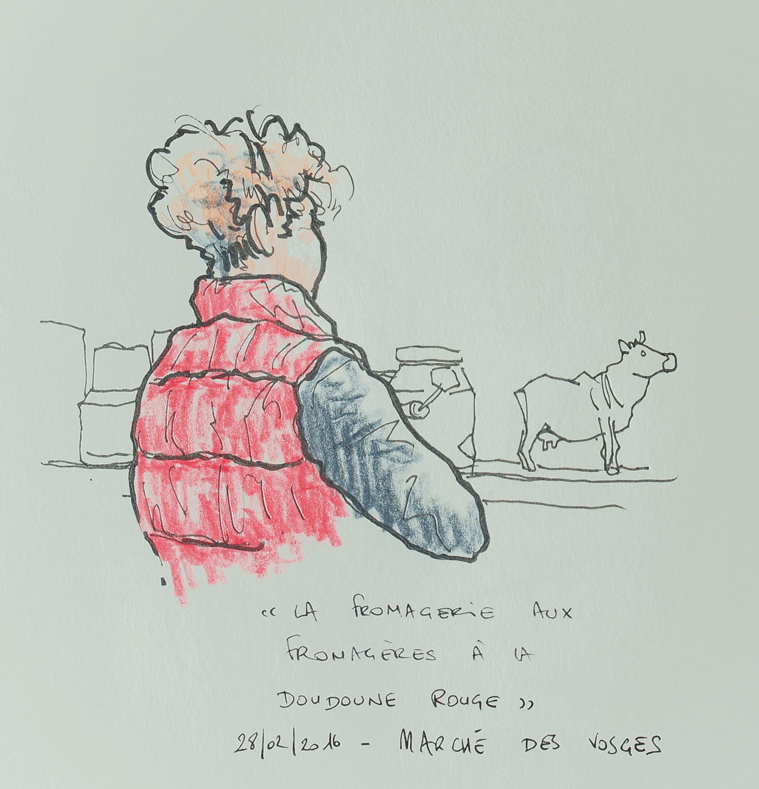 « LA FROMAGERIE AUX
FROMAGÈRES À LA
DOUDOUNE ROUGE »
28/02/2016 - MARCHÉ DES VOSGES